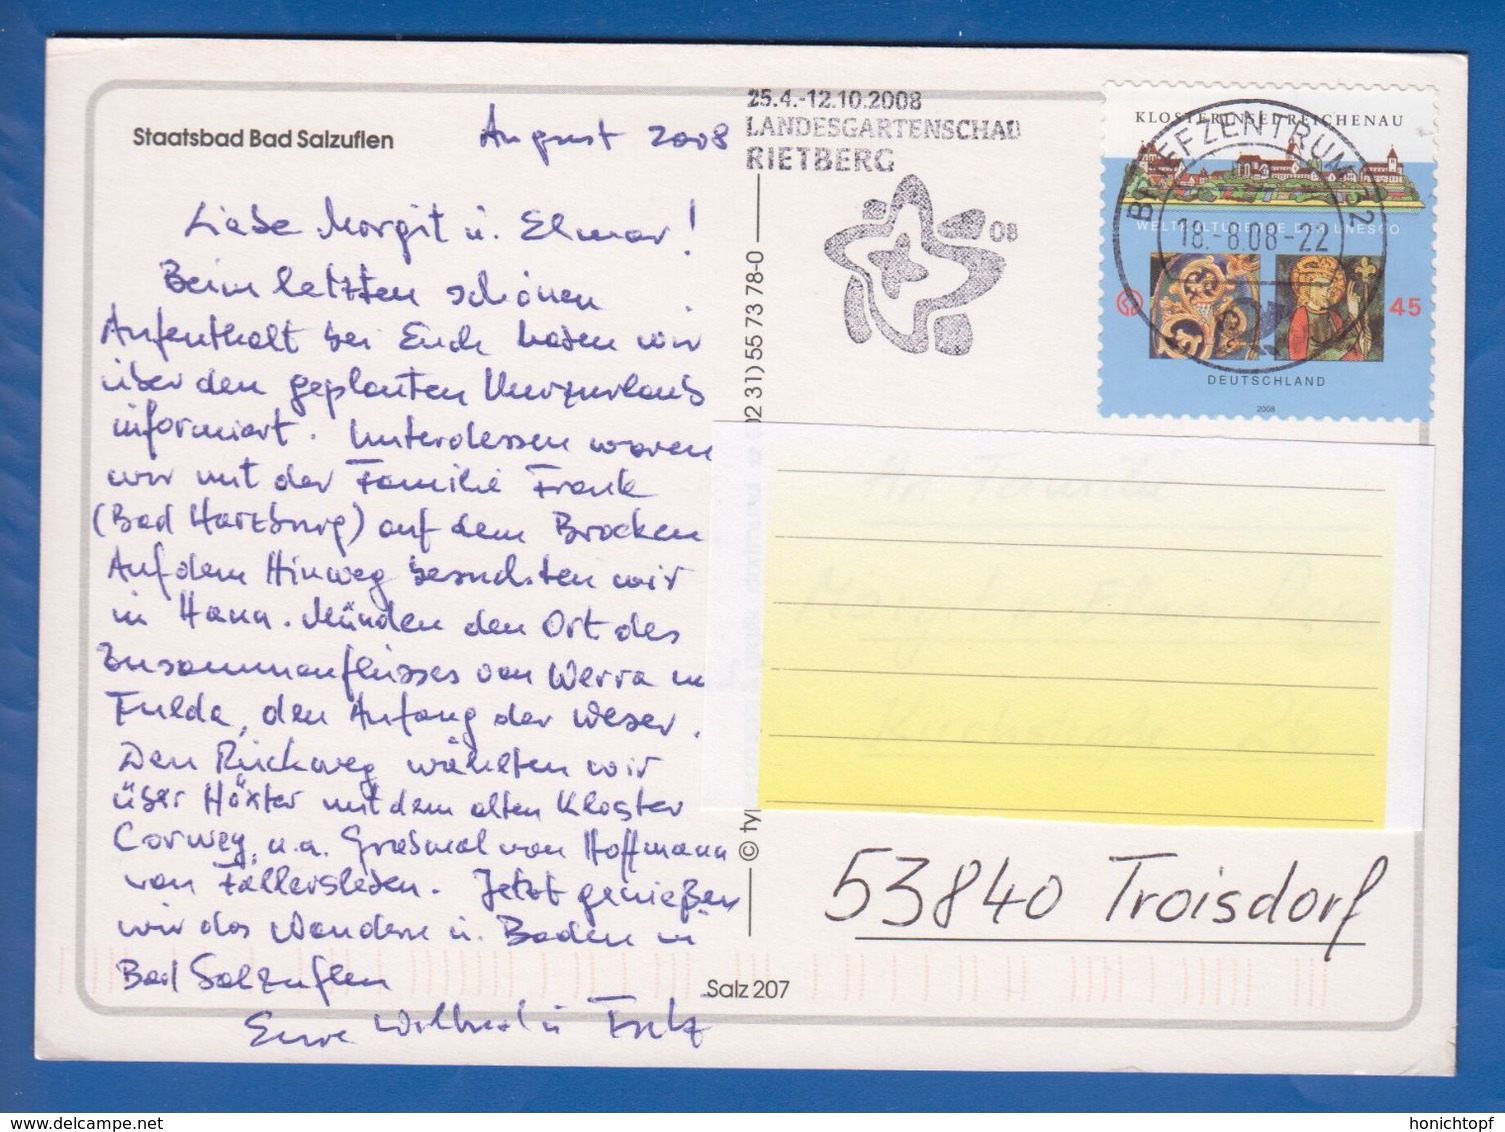 Staatsbad Bad Salzuflen
August 2008
Liebe Margit u. Elmar!
Beim letzten schönen
Aufenthalt bei Euch haben wir
über den geplanten Kurzurlaub
informiert. Unterdessen waren
wir mit der Familie Frank
(Bad Harzburg) auf dem Brocken
Auf dem Hinweg besuchten wir
in Hann. Münden den Ort des
Zusammenflusses von Werra u
Fulda, den Anfang der Weser.
Den Rückweg wählten wir
über Höxter mit dem alten Kloster
Corvey, u.a. Grabmal von Hoffmann
von Fallersleben. Jetzt genießen
wir das Wandern u. Baden in
Bad Salzuflen
Eure u Fritz
25.4.-12.10.2008
LANDESGARTENSCHAU
RIETBERG
08
KLOSTERINSEL REICHENAU
BRIEFZENTRUM 32
18.-8.08-22
WELTKULTURERBE DER UNESCO
45
DEUTSCHLAND
2008
02 31) 55 73 78-0
© typ
An Familie
Margit u. Elmar
53840 Troisdorf
Salz 207
honichtopf